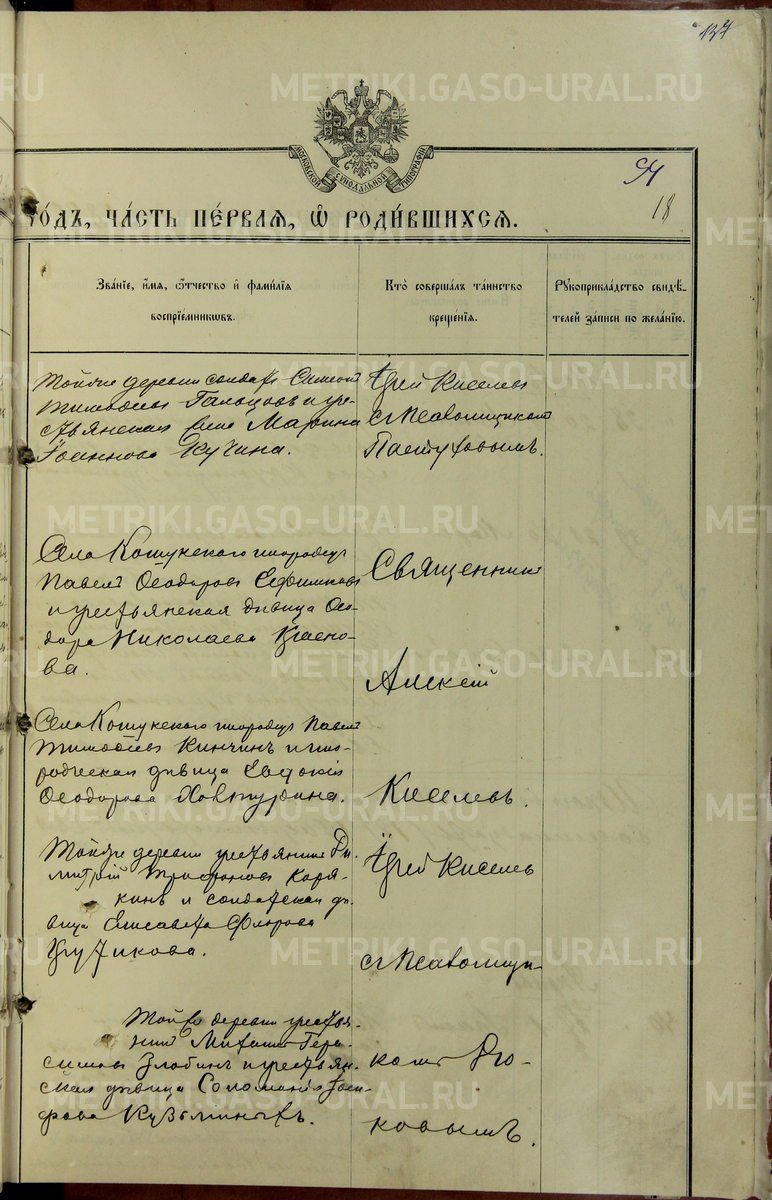 137
МОСКОВСКОЙ СѴНОДАЛЬНОЙ ТИПОГРАФІИ
94
18
ГОДЪ, ЧАСТЬ ПЕРВАЯ, Ѡ РОДИВШИХСЯ.
Званіе, имя, ѻтчество и фамилія
воспріемниковъ.
Кто совершалъ таинство
крещенія.
Рукоприкладство свидѣ-
телей записи по желанію.
Тойже деревни солдатъ Симеонъ
Тимоѳеевъ и кре-
стьянская Марина
Іоаннова Кучина.
Іерей Киселевъ
съ Псаломщикомъ
Пастуховымъ.
Села Кошукскаго инородецъ
Павелъ Ѳеодоровъ Ефимовъ
и крестьянская дѣвица Ѳео-
дора Николаева
ва.
Священникъ
Алексій
Киселевъ.
Села Кошукскаго инородецъ Павелъ
Тимоѳеевъ Кинчинъ и ино-
родческая дѣвица Евдокія
Ѳеодорова
Тойже деревни крестьянинъ Ди-
митрій Трифоновъ Каря-
кинъ и солдатская дѣ-
вица Елисавета Флорова
Іерей Киселевъ
съ Псаломщи-
комъ Рю-
ковымъ.
Тойже деревни крестья-
нинъ Михаилъ Гера-
симовъ Злобинъ и крестьян-
ская дѣвица Соломонія Іоси-
фова Кузьминыхъ.
METRIKI.GASO-URAL.RU